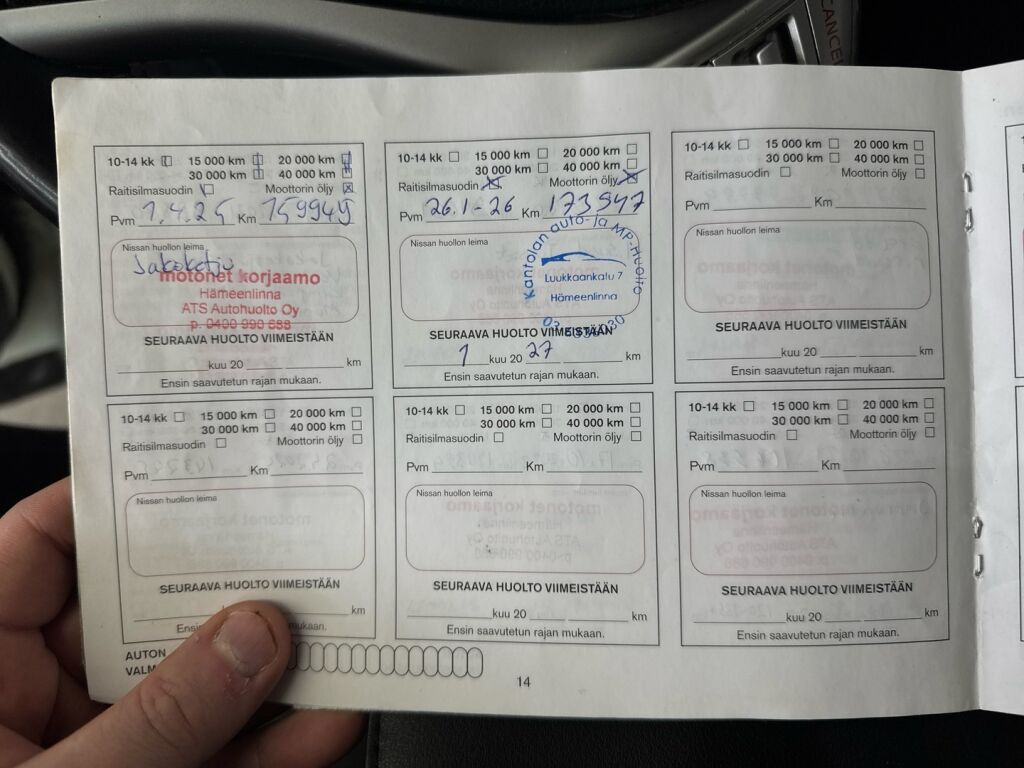 CANCEL
10-14 kk 15 000 km 20 000 km
30 000 km 40 000 km
Raitisilmasuodin Moottorin öljy
Pvm 1.4.25 Km 159949
Nissan huollon leima
Jakoketju
motonet korjaamo
Hämeenlinna
ATS Autohuolto Oy
p. 0400 990 688
SEURAAVA HUOLTO VIIMEISTÄÄN
kuu 20 km
Ensin saavutetun rajan mukaan.
10-14 kk 15 000 km 20 000 km
30 000 km 40 000 km
Raitisilmasuodin Moottorin öljy
Pvm 26.1-26 Km 173547
Nissan huollon leima
Kantolan auto- ja MP-Huolto
Luukkaankatu 7
Hämeenlinna
SEURAAVA HUOLTO VIIMEISTÄÄN
1 kuu 20 27 km
Ensin saavutetun rajan mukaan.
10-14 kk 15 000 km 20 000 km
30 000 km 40 000 km
Raitisilmasuodin Moottorin öljy
Pvm Km
Nissan huollon leima
SEURAAVA HUOLTO VIIMEISTÄÄN
kuu 20 km
Ensin saavutetun rajan mukaan.
10-14 kk 15 000 km 20 000 km
30 000 km 40 000 km
Raitisilmasuodin Moottorin öljy
Pvm Km
Nissan huollon leima
SEURAAVA HUOLTO VIIMEISTÄÄN
km
mukaan.
10-14 kk 15 000 km 20 000 km
30 000 km 40 000 km
Raitisilmasuodin Moottorin öljy
Pvm Km
Nissan huollon leima
SEURAAVA HUOLTO VIIMEISTÄÄN
kuu 20 km
Ensin saavutetun rajan mukaan.
10-14 kk 15 000 km 20 000 km
30 000 km 40 000 km
Raitisilmasuodin Moottorin öljy
Pvm Km
Nissan huollon leima
SEURAAVA HUOLTO VIIMEISTÄÄN
kuu 20 km
Ensin saavutetun rajan mukaan.
AUTON
14